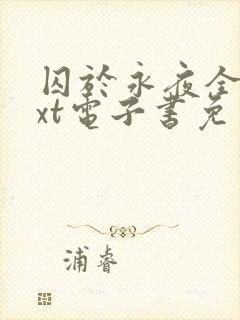 囚於永夜全
xt電子書免
浦睿